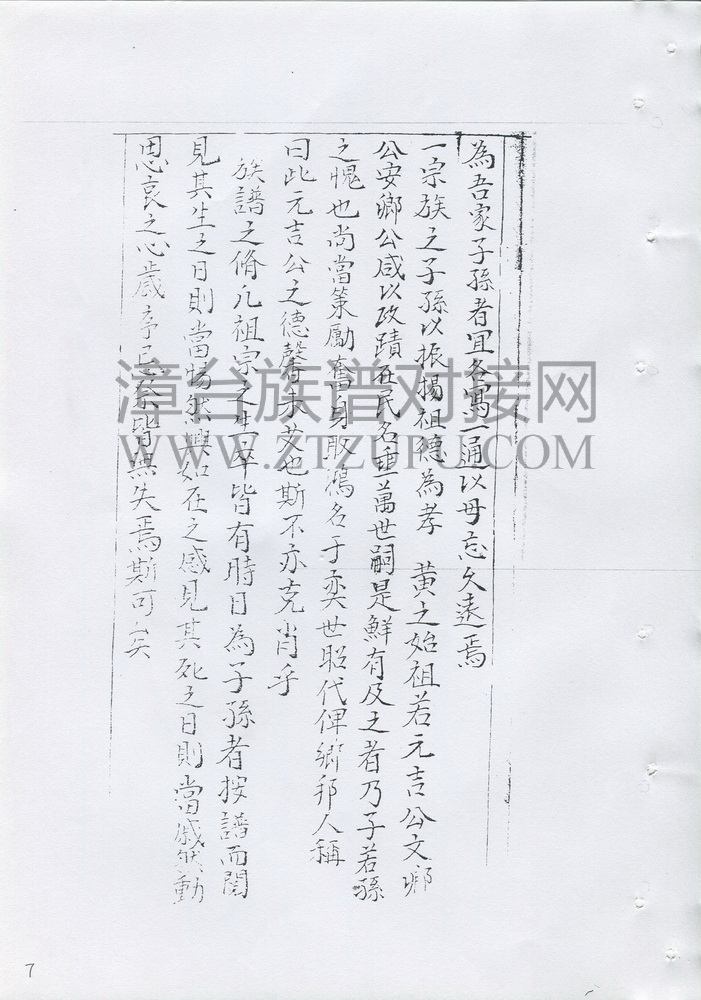 為吾家子孫者宜各寫一通以毋忘久遠焉
一宗族之子孫以振揚祖德為孝 黃之始祖若元吉公文鄉
公安鄉公咸以政蹟在民名垂萬世嗣是鮮有及之者乃子若孫
之愧也尚當策勵奮身取鴻名于奕世昭代俾鄉邦人稱
曰此元吉公之德馨未艾也斯不亦克肖乎
族譜之脩凡祖宗之生卒皆有時日為子孫者按譜而閱
見其生之日則當惕然興如在之感見其死之日則當戚然動
思哀之心歲序忌祭皆無失焉斯可矣
漳台族谱对接网
WWW.ZTZUPU.COM
7